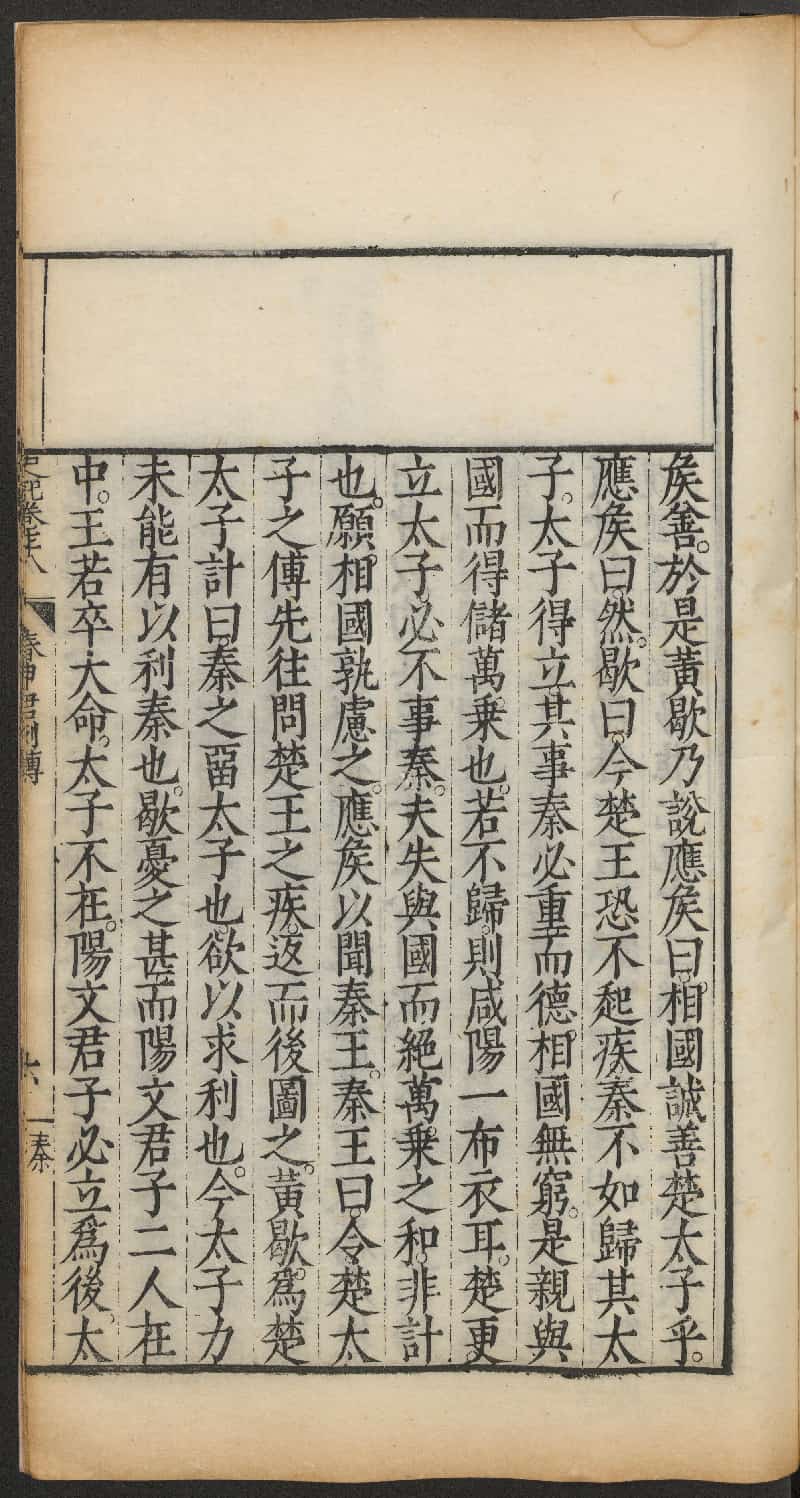 矦善。於是黃歇乃說應矦曰。相國誠善楚太子乎。
應矦曰。然。歇曰。今楚王恐不起疾。秦不如歸其太
子。太子得立。其事秦必重。而德相國無窮。是親與
國而得儲萬乗也。若不歸。則咸陽一布衣耳。楚更
立太子。必不事秦。夫失與國而絕萬乗之和。非計
也。願相國孰慮之。應矦以聞秦王。秦王曰。令楚太
子之傅先往問楚王之疾。返而後圖之。黃歇。爲楚
太子計曰。秦之畱太子也。欲以求利也。今太子力
未能有以利秦也。歇憂之甚。而陽文君子二人在
中。王若卒大命。太子不在。陽文君子必立爲後。太
史記卷七十八
春申君列傳
六
一秦